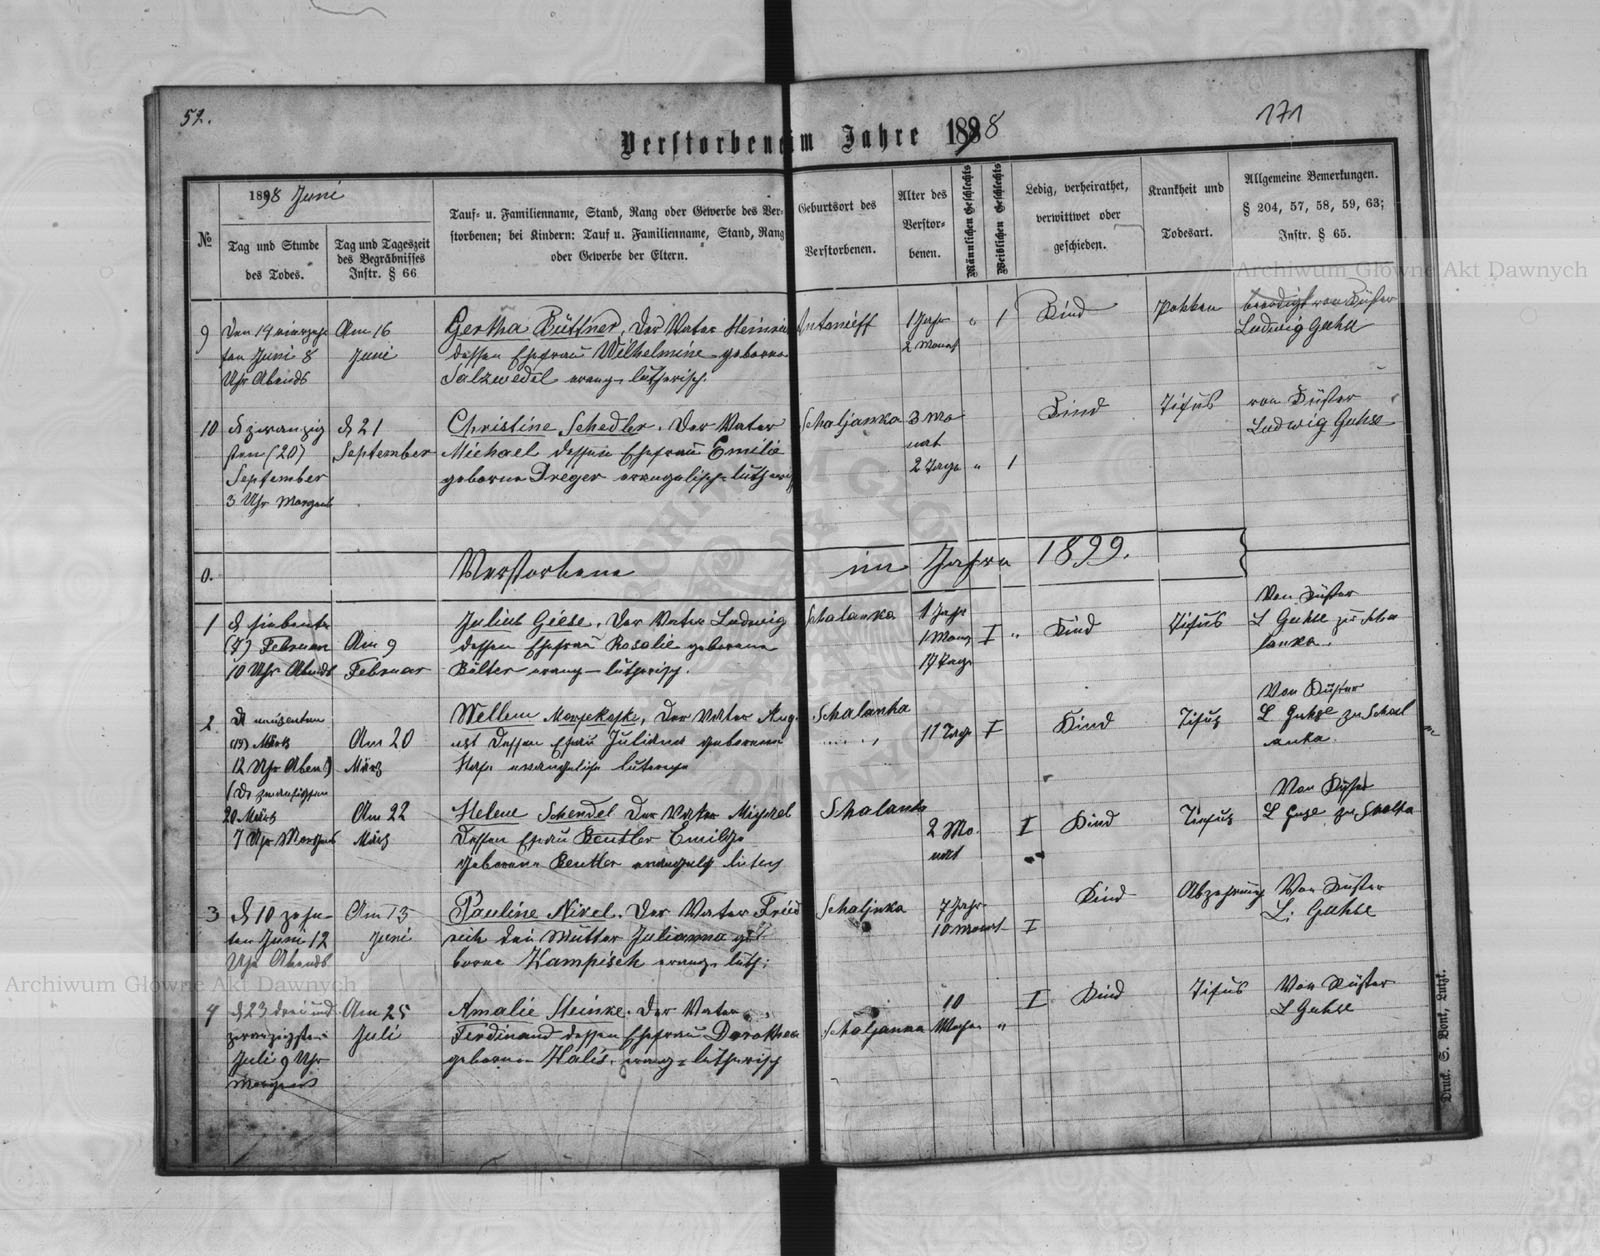 52.
171
Verstorbene im Jahre 1898
1898 Juni
№
Tag und Stunde
des Todes.
Tag und Tageszeit
des Begräbnisses
Instr. § 66
Tauf- u. Familienname, Stand, Rang oder Gewerbe des Ver-
storbenen; bei Kindern: Tauf u. Familienname, Stand, Rang
oder Gewerbe der Eltern.
Geburtsort des
Verstorbenen.
Alter des
Verstor-
benen.
Männlichen Geschlechts
Weiblichen Geschlechts
Ledig, verheirathet,
verwittwet oder
geschieden.
Krankheit und
Todesart.
Allgemeine Bemerkungen.
§ 204, 57, 58, 59, 63;
Instr. § 65.
9
Den 14 vierzehn
ten Juni 8
Uhr Abends
Am 16
Juni
Gertha Büttner. Der Vater Heinrich
dessen Ehefrau Wilhelmine geborene
Salzwedel evang. lutherisch.
Antonieff
1 Jahr
2 Monat
" 1
Kind
Pokken
beerdigt von Küster
Ludwig Guhse
10
d zwanzig
sten (20)
September
3 Uhr Morgens
d 21
September
Christine Schedler. Der Vater
Michael dessen Ehefrau Emilie
geborene Dreger evangelisch-lutherisch
Schaljanka
3 Mo
nat
2 Tage
" 1
Kind
Tifus
von Küster
Ludwig Guhse
0.
Verstorbene im Jahre 1899.
1
d siebente
(7) Februar
10 Uhr Abends
Am 9
Februar
Julius Giese. Der Vater Ludwig
dessen Ehefrau Rosalie geborene
Bälter evang-lutherisch.
Schalanka
1 Jahr
1 Mona
17 Tage
I "
Kind
Tifus
Von Küster
L Guhse zu Scha
lanka.
2
(19) März
12 Uhr Abend
Am 20
März
Wellem
Der Vater Aug
ust Dessen Ehfrau Juliana geborene
Schalanka
11 Tage
I
Kind
Tifus
Von Küster
L Guhse zu Schal
anka.
20 März
7 Uhr Morgens
Am 22
März
Helene Schendel Der Vater Michael
Dessen Ehfrau Beutler Emilije
Geborene Beutler
Schalank
2 Mo.
nat
I
Kind
Tifus
Von Küster
3
d 10 zehn-
ten Juni 12
Uhr Abends
Am 13
Juni
Pauline Nikel. Der Vater Fried
reich die Mutter Julianna ge
borne Kampisch evang. luth:
Schaljnka
7 Jahr
10 Monat
I
Kind
Abzehrung
Von Küster
L. Guhse
4
d 23 drei und
zwanzigsten
Juli 9 Uhr
Morgens
Am 25
Juli
Amalie Steinke. Der Vater
Ferdinand dessen Ehefrau Dorothea
geborene Halis. evang-lutherisch
Schaljanka
10
Wochen
" I
Kind
Tifus
Von Küster
L Guhse
Druck. S. Wonk, Lutzk.
Archiwum Główne Akt Dawnych
Archiwum Główne Akt Dawnych